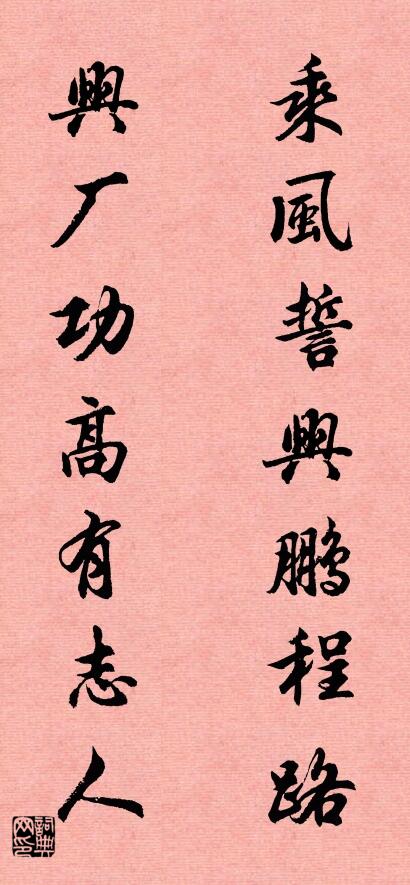 乘風誓興鵬程路
興厂功高有志人
詞典网印